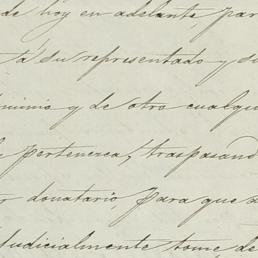 de hoy en adelante, par
ta su representado y su
minio y de otro cualqu
le pertenezca, traspasand
or donatario, para que
Judicialmente tome, de